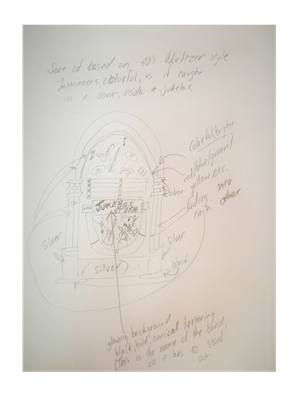 Sort of based on 50's Wurlitzer style
Instruments, colorful, as if caught
in a storm, inside a jukebox
Colorful/brighter
red/blue/green/
Silver yellow etc.
fading into
each other
JUKEBOX
STORM
Silver
Silver
(Silver)
black
glowing background
black, bold, comical lettering
(This is the name of the band,
so it has to stand
out